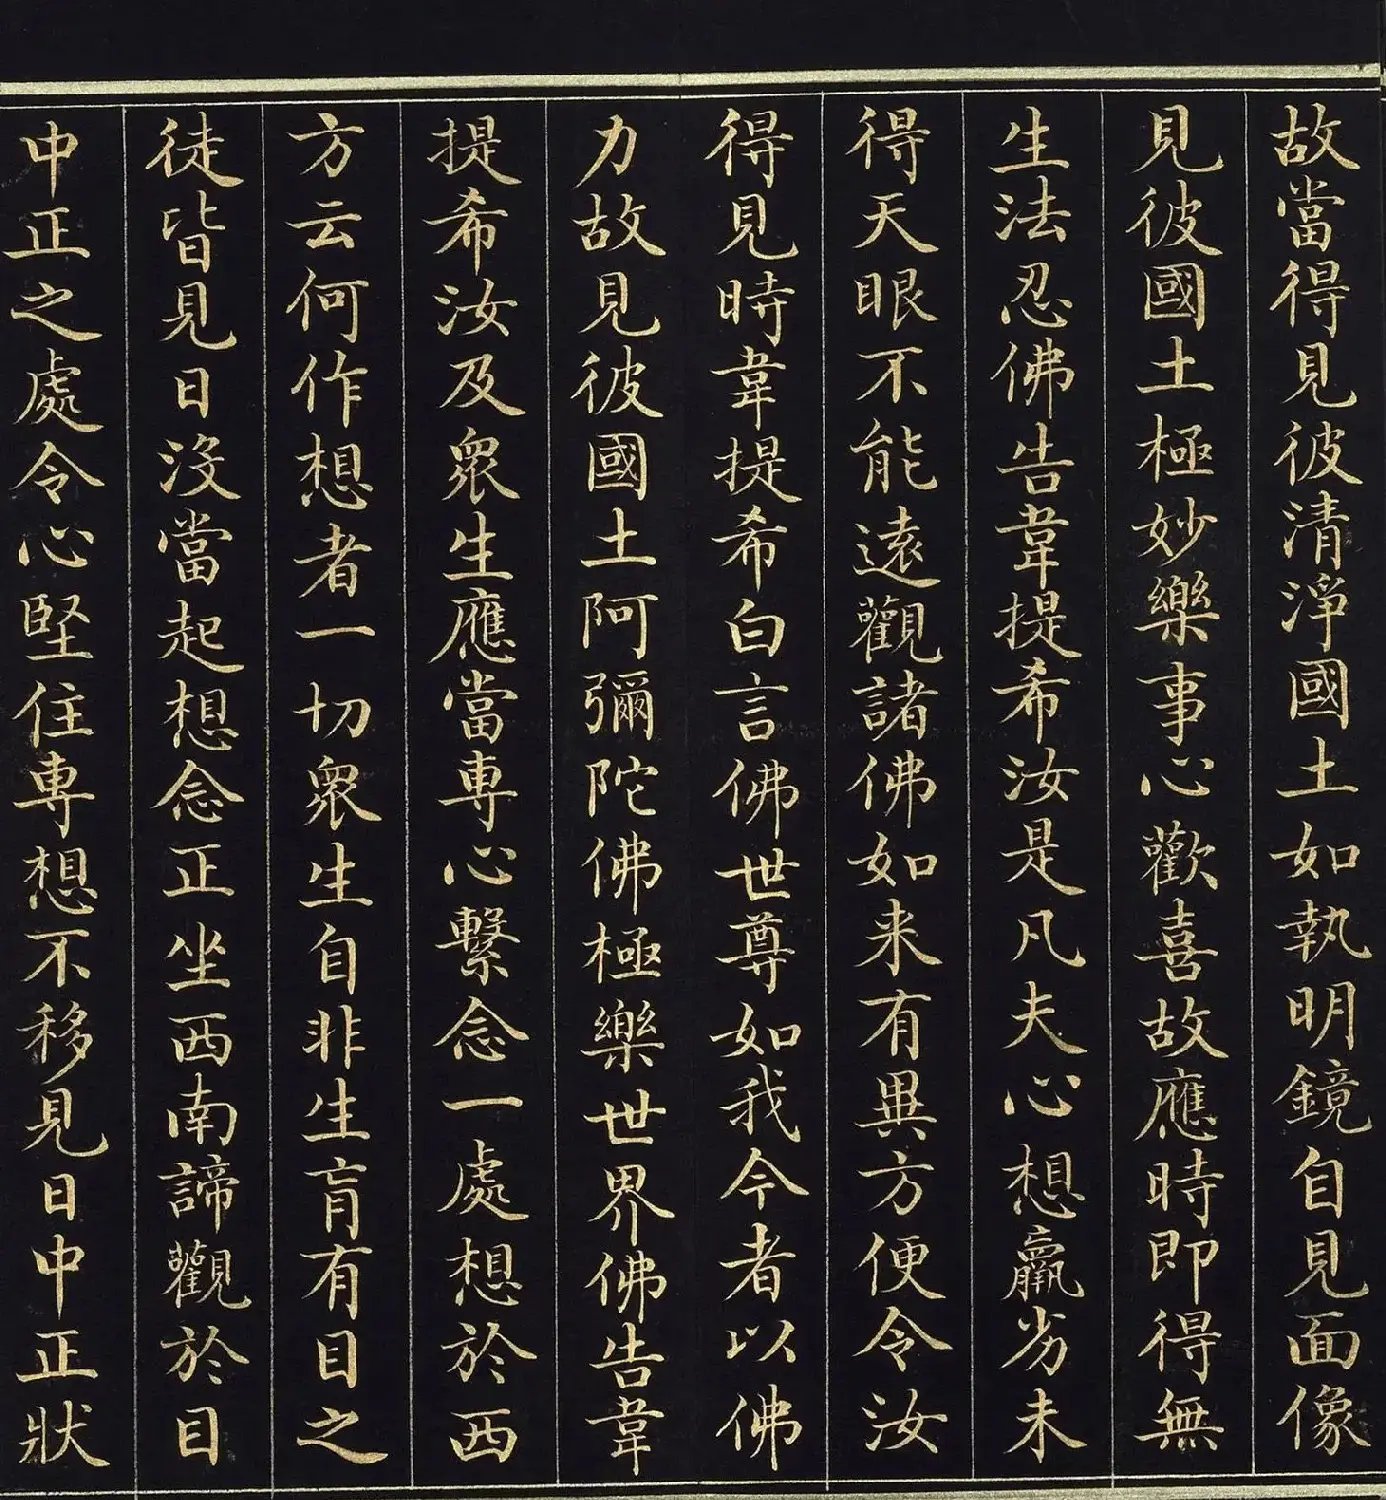 故當得見彼清淨國土如執明鏡自見面像
見彼國土極妙樂事心歡喜故應時即得無
生法忍佛告韋提希汝是凡夫心想羸劣未
得天眼不能遠觀諸佛如来有異方便令汝
得見時韋提希白言佛世尊如我今者以佛
力故見彼國土阿彌陀佛極樂世界佛告韋
提希汝及眾生應當專心繫念一處想於西
方云何作想者一切眾生自非生肓有目之
徒皆見日沒當起想念正坐西南諦觀於日
中正之處令心堅住專想不移見日中正狀